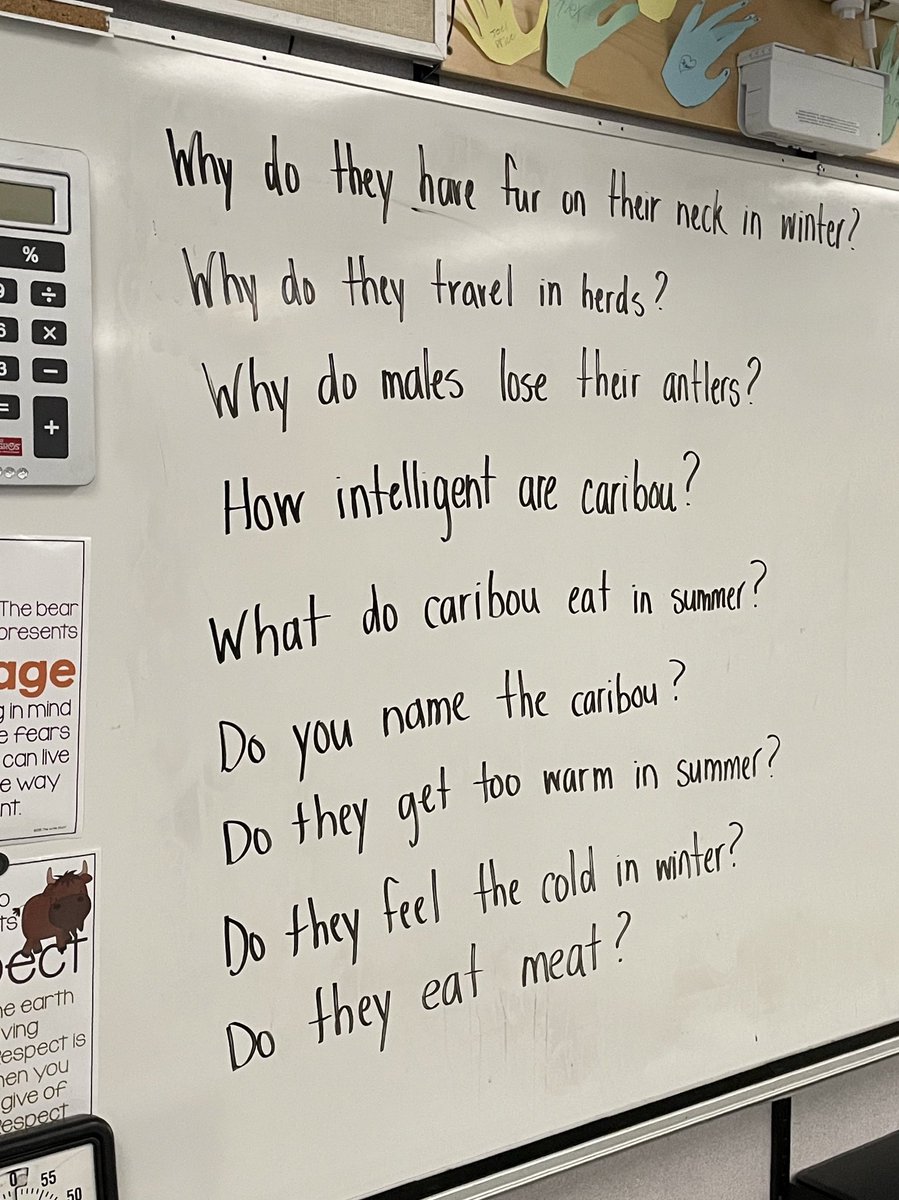 Why do they have fur on their neck in winter?
Why do they travel in herds?
Why do males lose their antlers?
How intelligent are caribou?
What do caribou eat in summer?
Do you name the caribou?
Do they get too warm in summer?
Do they feel the cold in winter?
Do they eat meat?
%
9 ÷
6 ×
3 −
= +
The bear
presents
age
g in mind
e fears
can live
e way
nt.
o
ts
pect
he earth
ving
Respect is
hen you
give of
respect
0 55
50